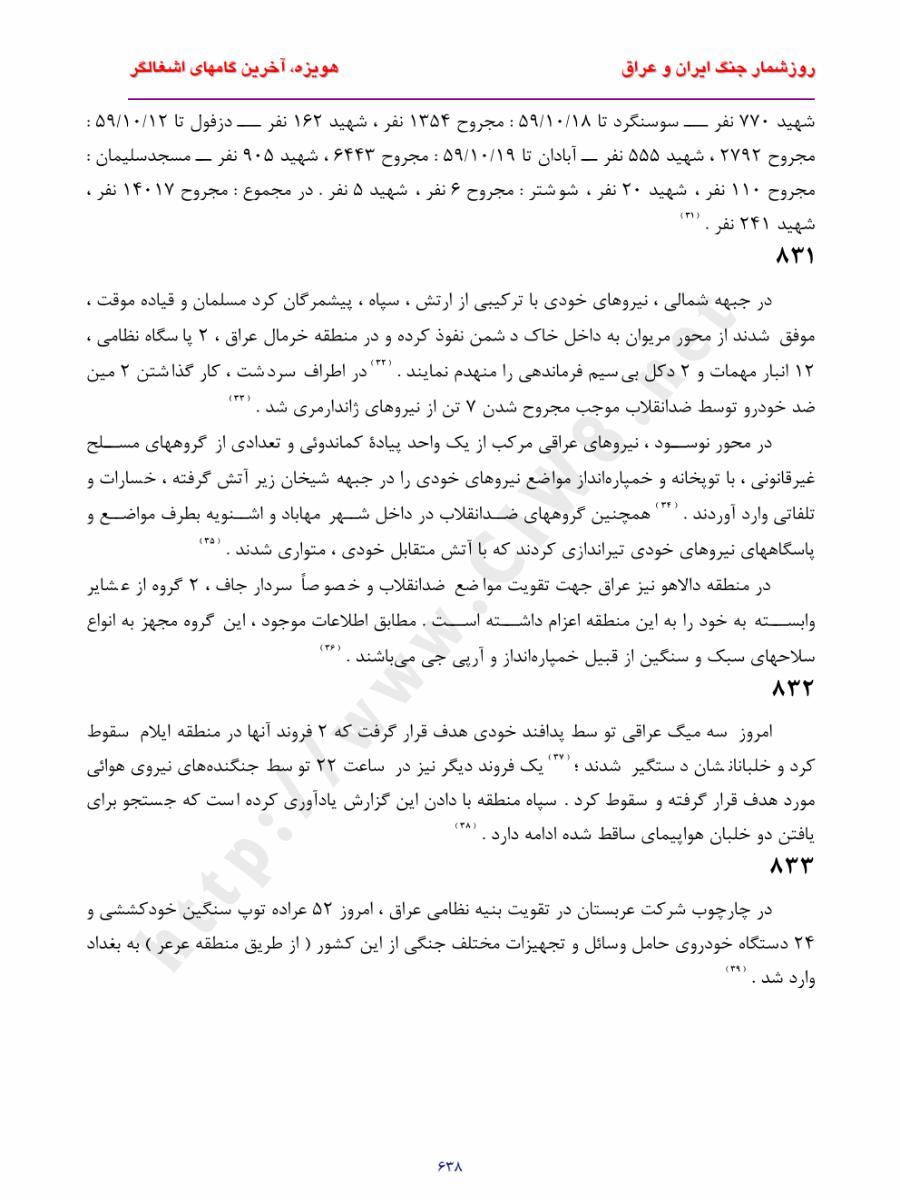 روزشمار جنگ ایران و عراق
هویزه، آخرین گامهای اشغالگر
شهید ۷۷۰ نفر ـــ سوسنگرد تا ۵۹/۱۰/۱۸ : مجروح ۱۳۵۴ نفر ، شهید ۱۶۲ نفر ـــ دزفول تا ۵۹/۱۰/۱۲ :
مجروح ۲۷۹۲ ، شهید ۵۵۵ نفر ـــ آبادان تا ۵۹/۱۰/۱۹ : مجروح ۶۴۴۳ ، شهید ۹۰۵ نفر ـــ مسجدسلیمان :
مجروح ۱۱۰ نفر ، شهید ۲۰ نفر ، شوشتر : مجروح ۶ نفر ، شهید ۵ نفر . در مجموع : مجروح ۱۴۰۱۷ نفر ،
شهید ۲۴۱ نفر . (۳۱)
۸۳۱
در جبهه شمالی ، نیروهای خودی با ترکیبی از ارتش ، سپاه ، پیشمرگان کرد مسلمان و قیاده موقت ،
موفق شدند از محور مریوان به داخل خاک دشمن نفوذ کرده و در منطقه خرمال عراق ، ۲ پاسگاه نظامی ،
۱۲ انبار مهمات و ۲ دکل بی‌سیم فرماندهی را منهدم نمایند . (۳۲) در اطراف سردشت ، کار گذاشتن ۲ مین
ضد خودرو توسط ضدانقلاب موجب مجروح شدن ۷ تن از نیروهای ژاندارمری شد . (۳۳)
در محور نوســود ، نیروهای عراقی مرکب از یک واحد پیادۀ کماندوئی و تعدادی از گروههای مســلح
غیرقانونی ، با توپخانه و خمپاره‌انداز مواضع نیروهای خودی را در جبهه شیخان زیر آتش گرفته ، خسارات و
تلفاتی وارد آوردند . (۳۴) همچنین گروههای ضــدانقلاب در داخل شــهر مهاباد و اشــنویه بطرف مواضــع و
پاسگاههای نیروهای خودی تیراندازی کردند که با آتش متقابل خودی ، متواری شدند . (۳۵)
در منطقه دالاهو نیز عراق جهت تقویت مواضع ضدانقلاب و خصوصاً سردار جاف ، ۲ گروه از عشایر
وابســـته به خود را به این منطقه اعزام داشـــته اســـت . مطابق اطلاعات موجود ، این گروه مجهز به انواع
سلاحهای سبک و سنگین از قبیل خمپاره‌انداز و آرپی جی می‌باشند . (۳۶)
۸۳۲
امروز سه میگ عراقی توسط پدافند خودی هدف قرار گرفت که ۲ فروند آنها در منطقه ایلام سقوط
کرد و خلبانانشان دستگیر شدند ؛(۳۷) یک فروند دیگر نیز در ساعت ۲۲ توسط جنگنده‌های نیروی هوائی
مورد هدف قرار گرفته و سقوط کرد . سپاه منطقه با دادن این گزارش یادآوری کرده است که جستجو برای
یافتن دو خلبان هواپیمای ساقط شده ادامه دارد . (۳۸)
۸۳۳
در چارچوب شرکت عربستان در تقویت بنیه نظامی عراق ، امروز ۵۲ عراده توپ سنگین خودکششی و
۲۴ دستگاه خودروی حامل وسائل و تجهیزات مختلف جنگی از این کشور ( از طریق منطقه عرعر ) به بغداد
وارد شد . (۳۹)
۶۳۸